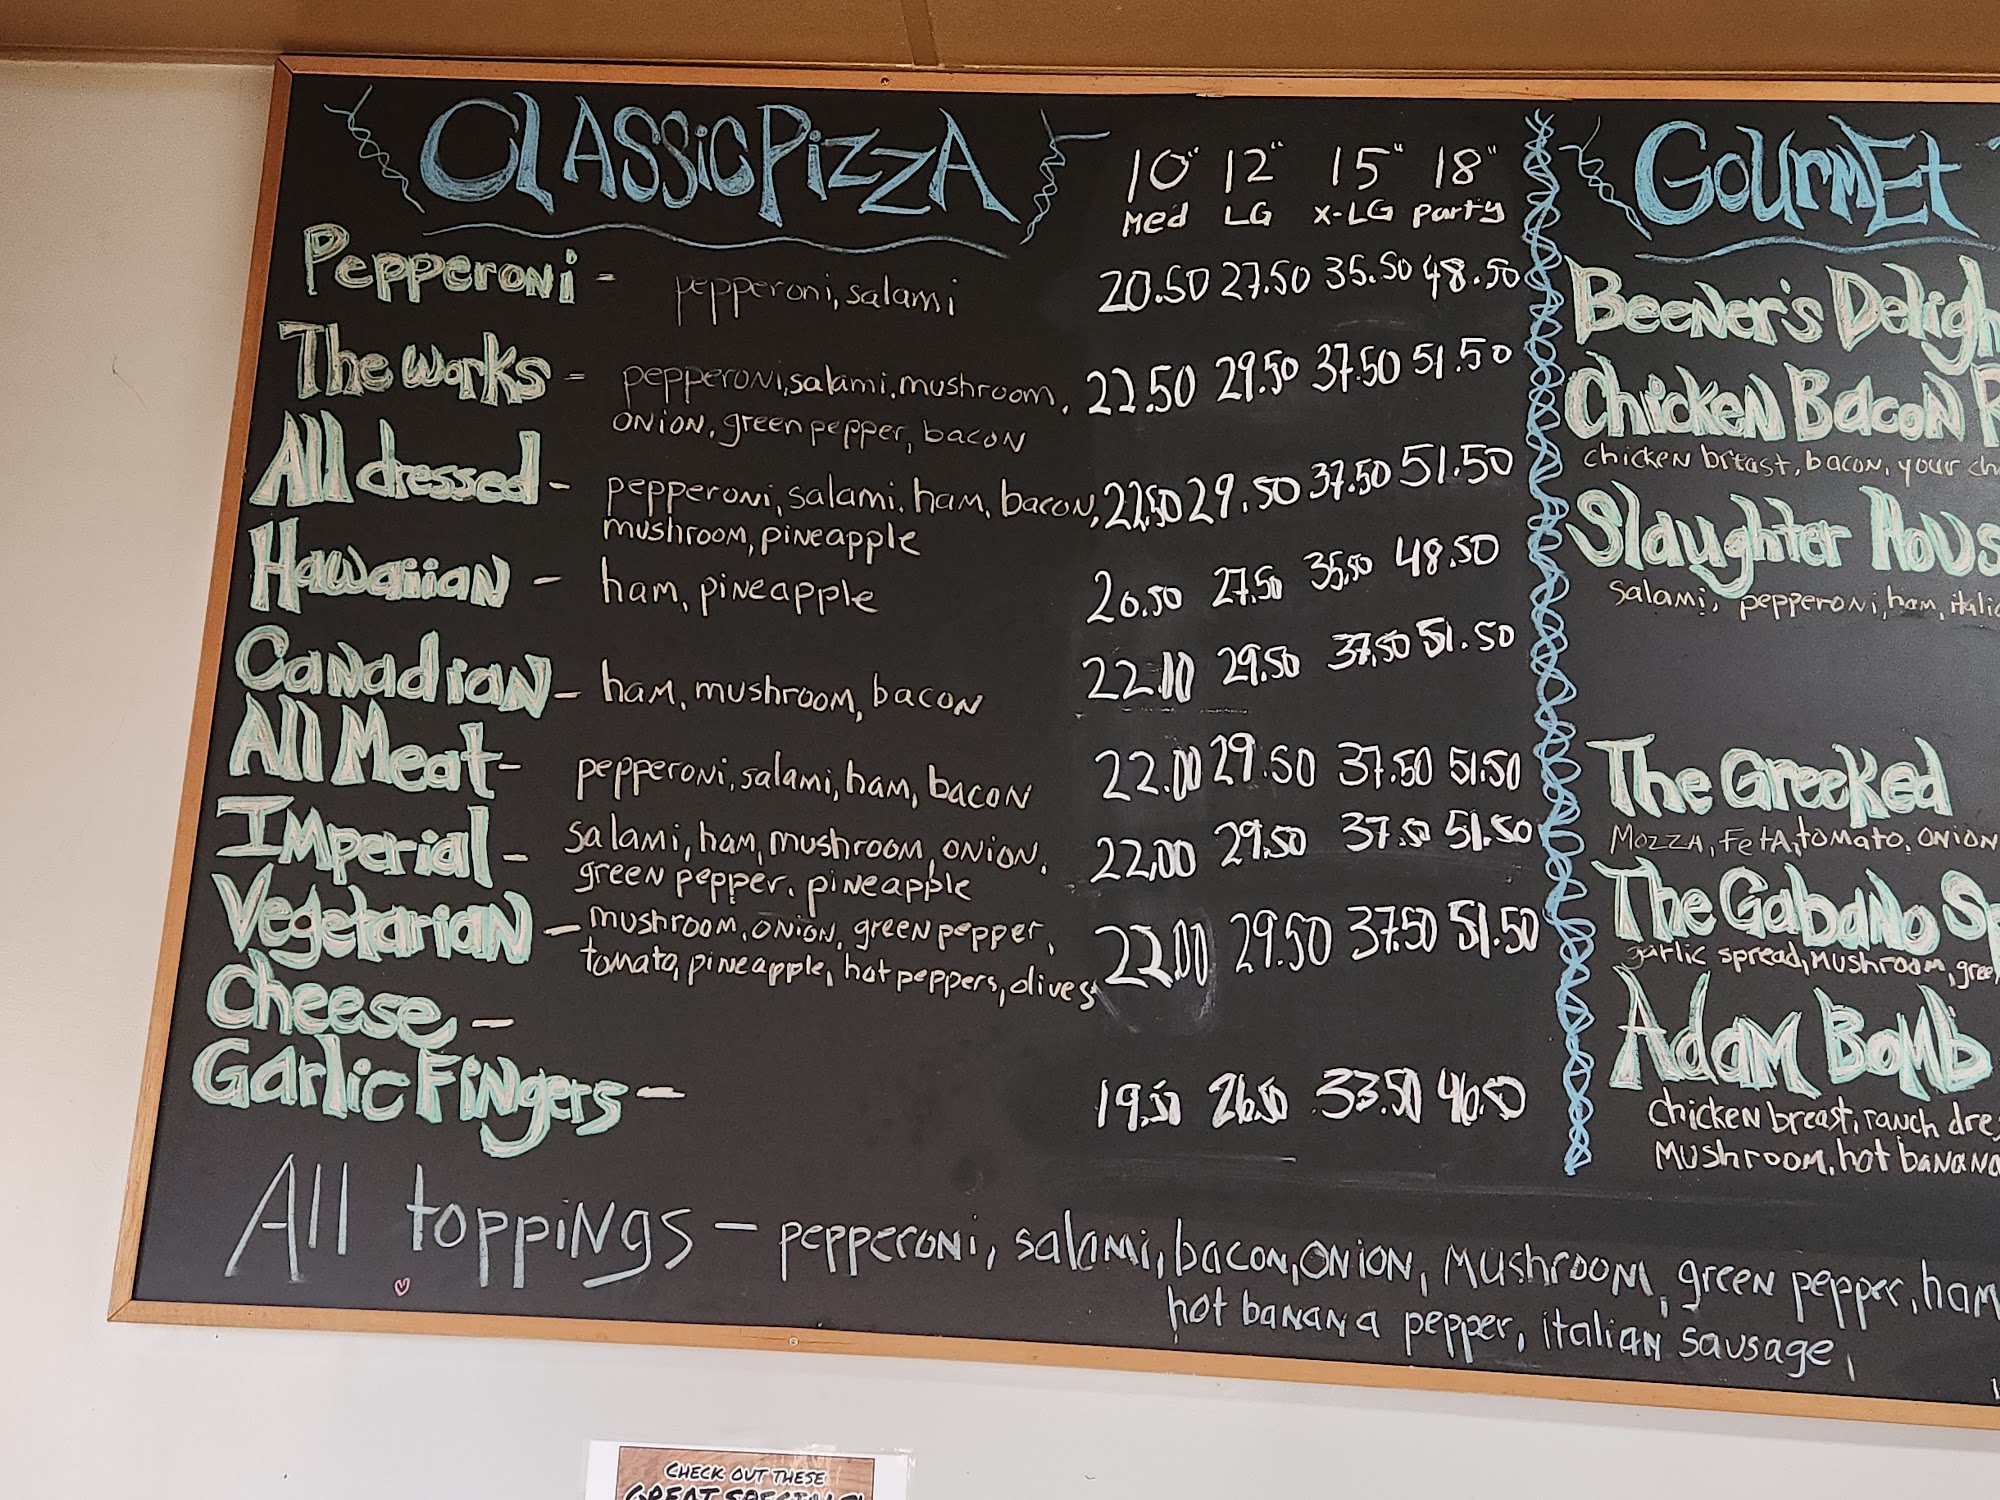 Classic Pizza
10" 12" 15" 18"
Med LG X-LG Party
Pepperoni - pepperoni, salami 20.50 27.50 35.50 48.50
The Works - pepperoni, salami, mushroom, 22.50 29.50 37.50 51.50
onion, green pepper, bacon
All dressed - pepperoni, salami, ham, bacon, 22.50 29.50 37.50 51.50
mushroom, pineapple
Hawaiian - ham, pineapple 20.50 27.50 35.50 48.50
Canadian - ham, mushroom, bacon 29.50 37.50 51.50
All Meat - pepperoni, salami, ham, bacon 22.00 29.50 37.50 51.50
Imperial - salami, ham, mushroom, onion, 22.00 29.50 37.50 51.50
green pepper, pineapple
Vegetarian - mushroom, onion, green pepper, 22.00 29.50 37.50 51.50
tomato, pineapple, hot peppers, olives
Cheese -
Garlic Fingers - 19.50 26.50 33.50 46.50
Gourmet
Beener's Deligh
Chicken Bacon R
chicken breast, bacon, your ch
Slaughter Hous
salami, pepperoni, ham, itali
The Greeked
Mozza, Feta, tomato, onion
The Gabano Sp
garlic spread, mushroom, gree
Adam Bomb
chicken breast, ranch dre
mushroom, hot banana
All toppings - pepperoni, salami, bacon, onion, mushroom, green pepper, ham
hot banana pepper, italian sausage,
Check out these
Great Specials!